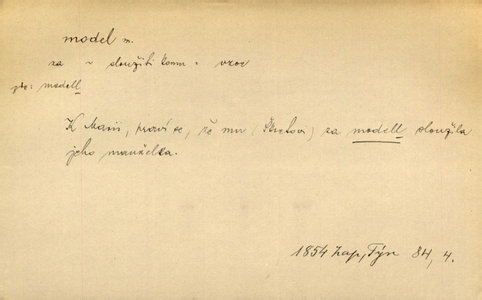 model m.
za ~ sloužiti komu = vzor
ps: modell
K Marii, praví se, že mu (Škretovi) za modell sloužila
jeho manželka.
1854 Zap, Týn 84, 4.